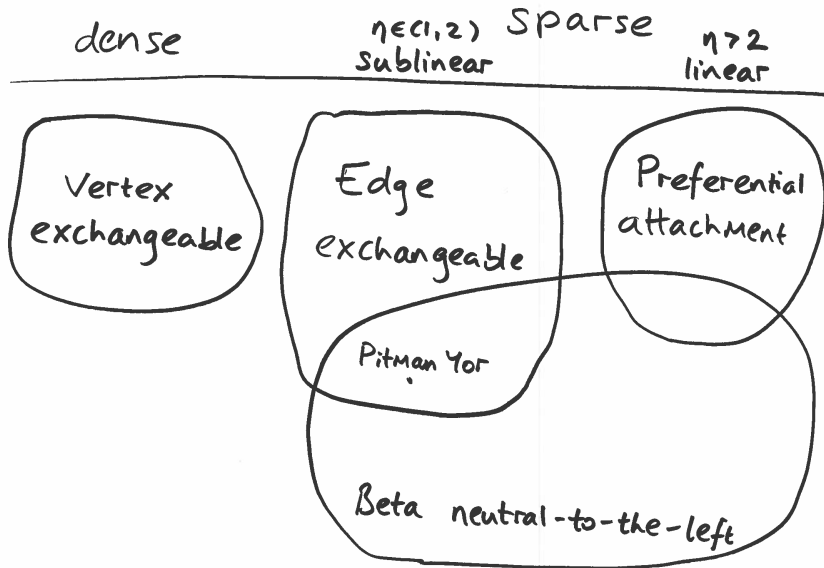 dense
η∈(1,2)
sparse
η>2
sublinear
linear
Vertex
exchangeable
Edge
exchangeable
Preferential
attachment
Pitman Yor
Beta neutral-to-the-left